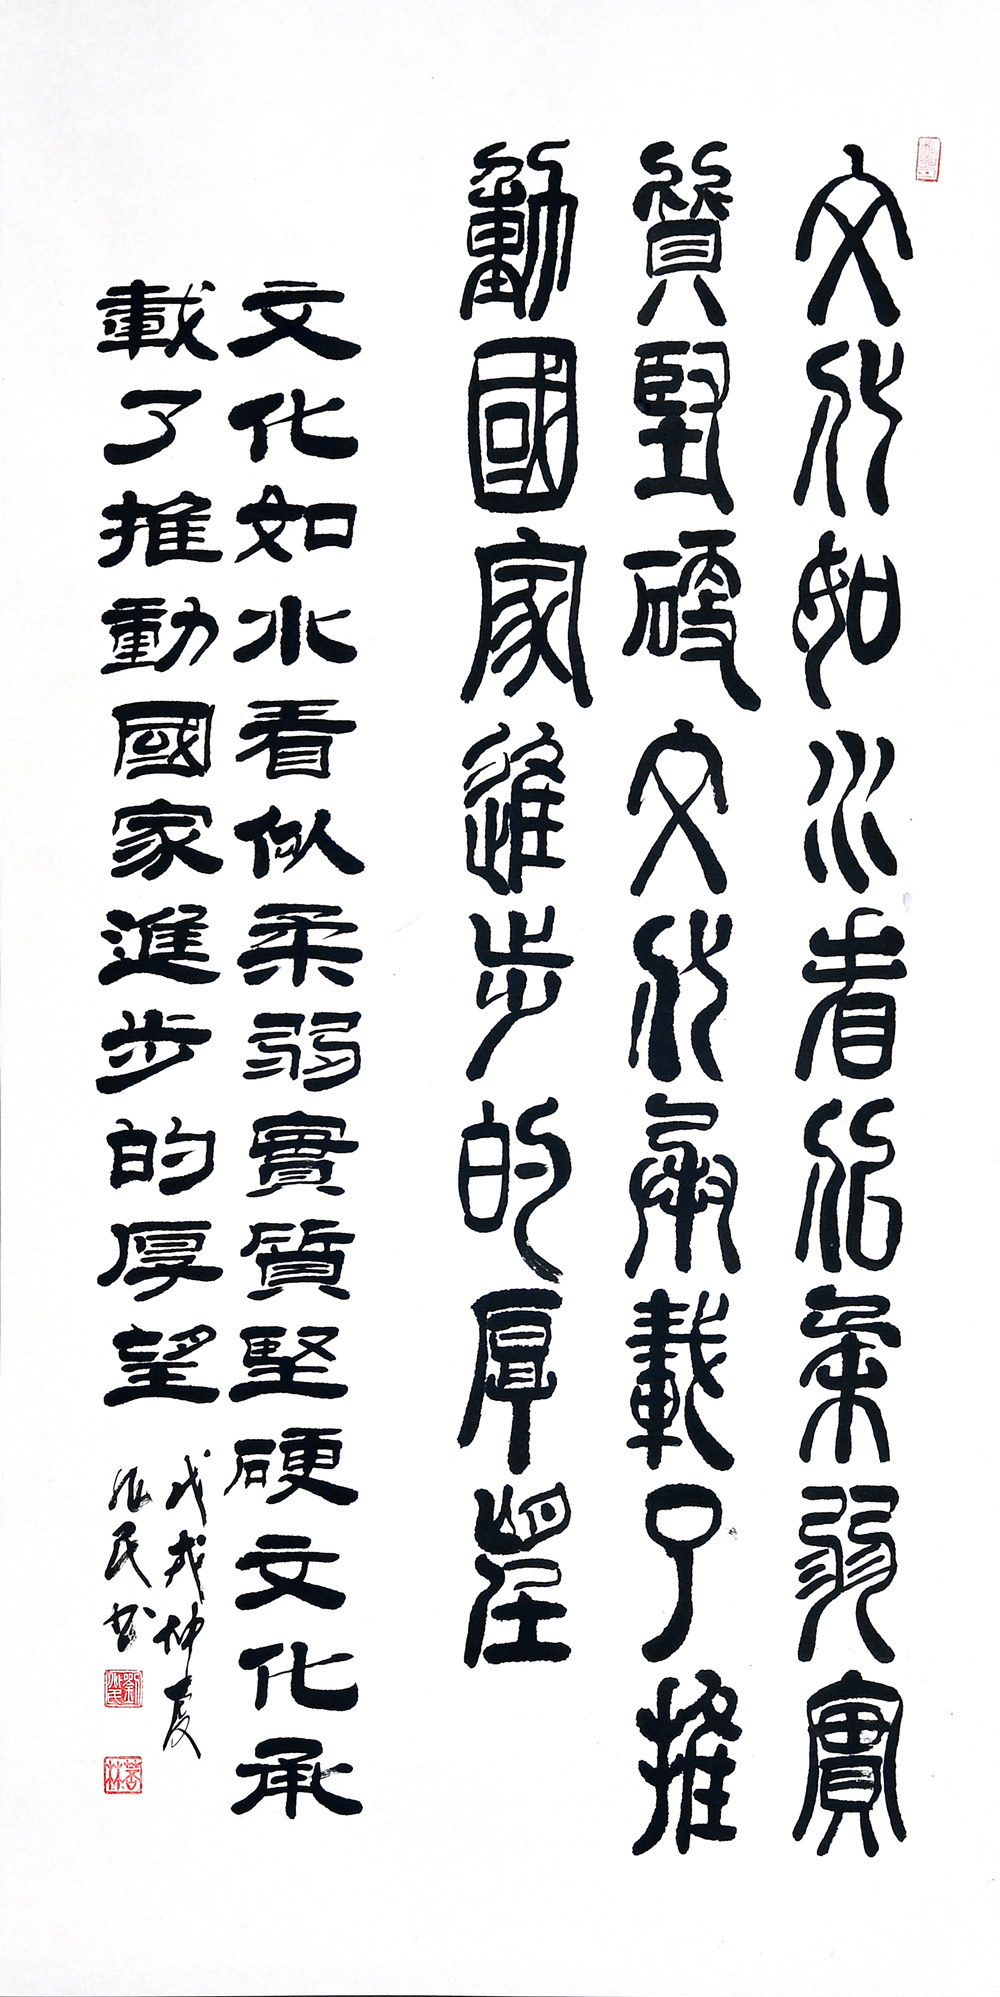 文化如水看似柔弱實
質堅硬文化承載了推
動國家進步的厚望
文化如水看似柔弱實質堅硬文化承
載了推動國家進步的厚望
戊戌仲夏
民书